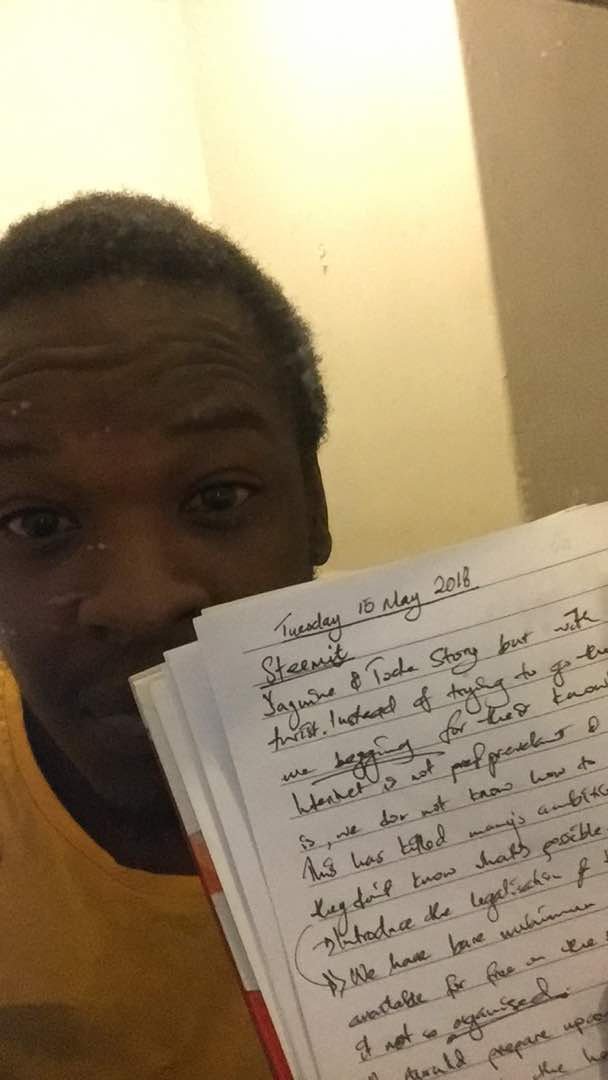 Tuesday 15 May 2018
Steemit
& Story but with
twist. Instead of trying to go
we begging for their
Internet is not prevalent &
is, we do not know how to
This has killed many's
they don't know what's possible
Introduce the legalisation
We have bare minimum
available for free on the
if not so organised.
prepare
the